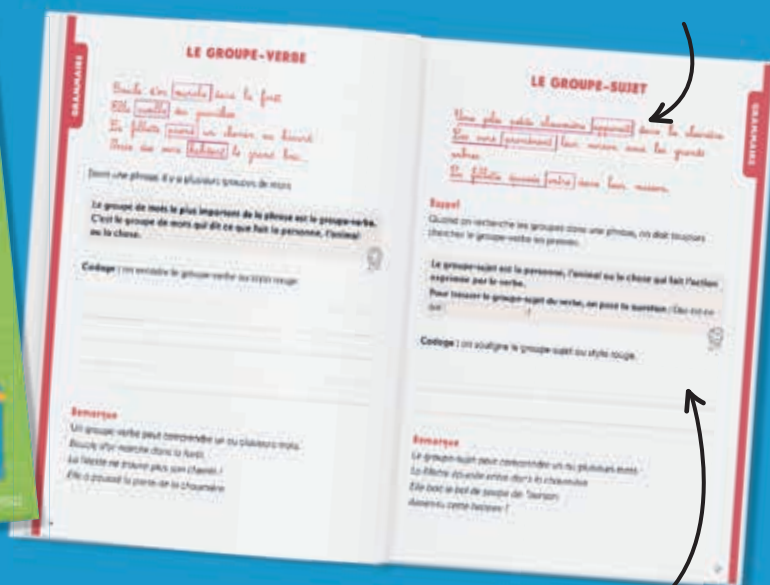 GRAMMAIRE
LE GROUPE-VERBE
Boucle d'or marche dans la forêt.
Elle cueille des jonquilles.
La fillette prend un chemin au hasard.
Trois ours habitent le grand bois.
Dans une phrase, il y a plusieurs groupes de mots.
Le groupe de mots le plus important de la phrase est le groupe-verbe.
C'est le groupe de mots qui dit ce que fait la personne, l'animal
ou la chose.
Codage : on encadre le groupe-verbe au stylo rouge.
Remarque
Un groupe-verbe peut comprendre un ou plusieurs mots.
Boucle d'or marche dans la forêt.
La fillette ne trouve plus son chemin !
Elle a poussé la porte de la chaumière.
GRAMMAIRE
LE GROUPE-SUJET
Une petite chaumière apparaît dans la clairière.
Les ours leur maison sous les grands
arbres.
La fillette épuisée entre dans leur maison.
Rappel
Quand on recherche les groupes dans une phrase, on doit toujours
chercher le groupe-verbe en premier.
Le groupe-sujet est la personne, l'animal ou la chose qui fait l'action
exprimée par le verbe.
Pour trouver le groupe-sujet du verbe, on pose la question : Qui est-ce
qui ?
Codage : on souligne le groupe-sujet au stylo rouge.
Remarque
Le groupe-sujet peut comprendre un ou plusieurs mots.
La fillette épuisée entre dans la chaumière.
Elle boit le bol de soupe de l'ourson.